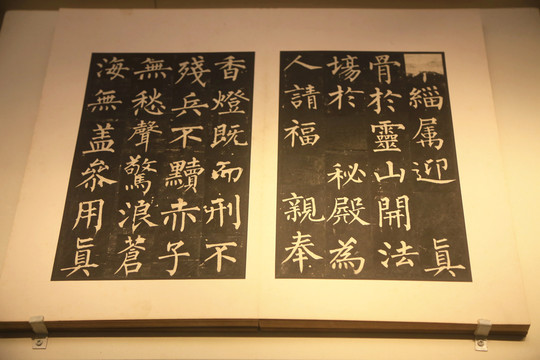 緇属迎 真
骨於靈山開法
場於 秘殿為
人請福 親奉
香燈既而刑不
殘兵不黷赤子
無愁聲驚浪蒼
海無盖參用眞